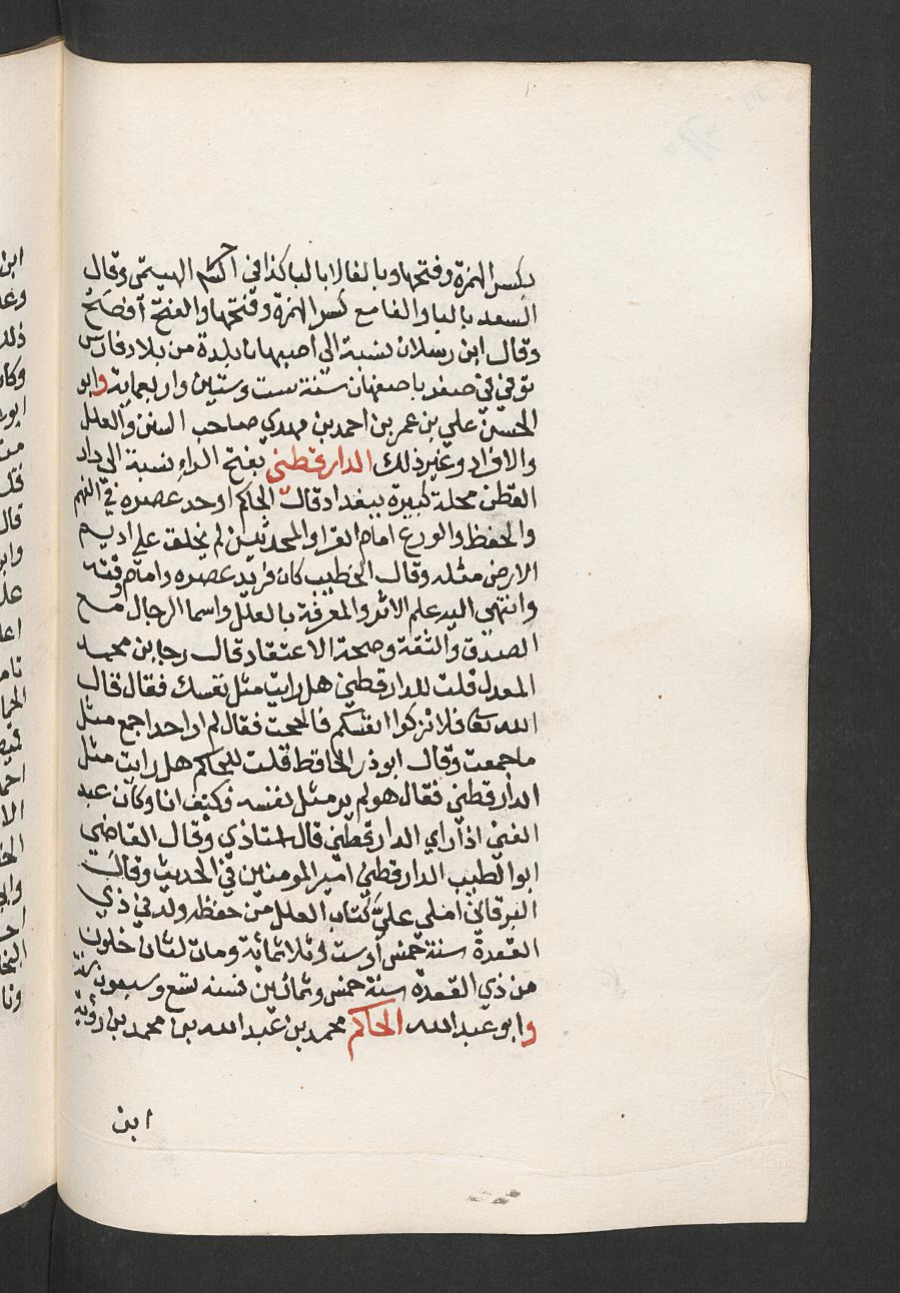 بكسر الهمزة وفتحها وبالفا لا بالبا كذا في الهيتمي وقال
السعد بالبا والفا مع كسر الهمزة وفتحها والفتح افصح
وقال ابن رسلان نسبة الى اصبهان بلدة من بلاد فارس
توفي في صفر باصفهان سنة ست وستين واربعماية وابو
الحسن علي بن عمر بن احمد بن مهدي صاحب السنن والعلل
والافراد وغير ذلك الدارقطني بفتح الراء نسبة الى دار
القطن محلة كبيرة ببغداد قال الحاكم اوحد عصره في الفهم
والحفظ والورع امام القرا والمحدثين لم يخلق على اديم
الارض مثله وقال الخطيب كان فريد عصره وامام وقته
وانتهى اليه علم الاثر والمعرفة بالعلل واسما الرجال مع
الصدق والثقة وصحة الاعتقاد قال رجا بن محمد
المعدل قلت للدارقطني هل رايت مثل نفسك فقال قال
الله تعا فلا تزكوا انفسكم فالححت فقال لم ار احدا جمع مثل
ما جمعت وقال ابو ذر الحافظ قلت للحاكم هل رايت مثل
الدارقطني فقال هو لم ير مثل نفسه فكيف انا وكان عبد
الغني اذا راي الدارقطني قال استاذي وقال القاضي
ابو الطيب الدارقطني امير المومنين في الحديث وقال
البرقاني املي عليّ كتاب العلل من حفظه ولد في ذي
القعدة سنة خمس او ست وثلاثمائة ومات لثمان خلون
من ذي القعدة سنة خمس وثمانين فسنه تسع وسبعون سنة
وابو عبد الله الحاكم محمد بن عبد الله بن محمد بن
ابن